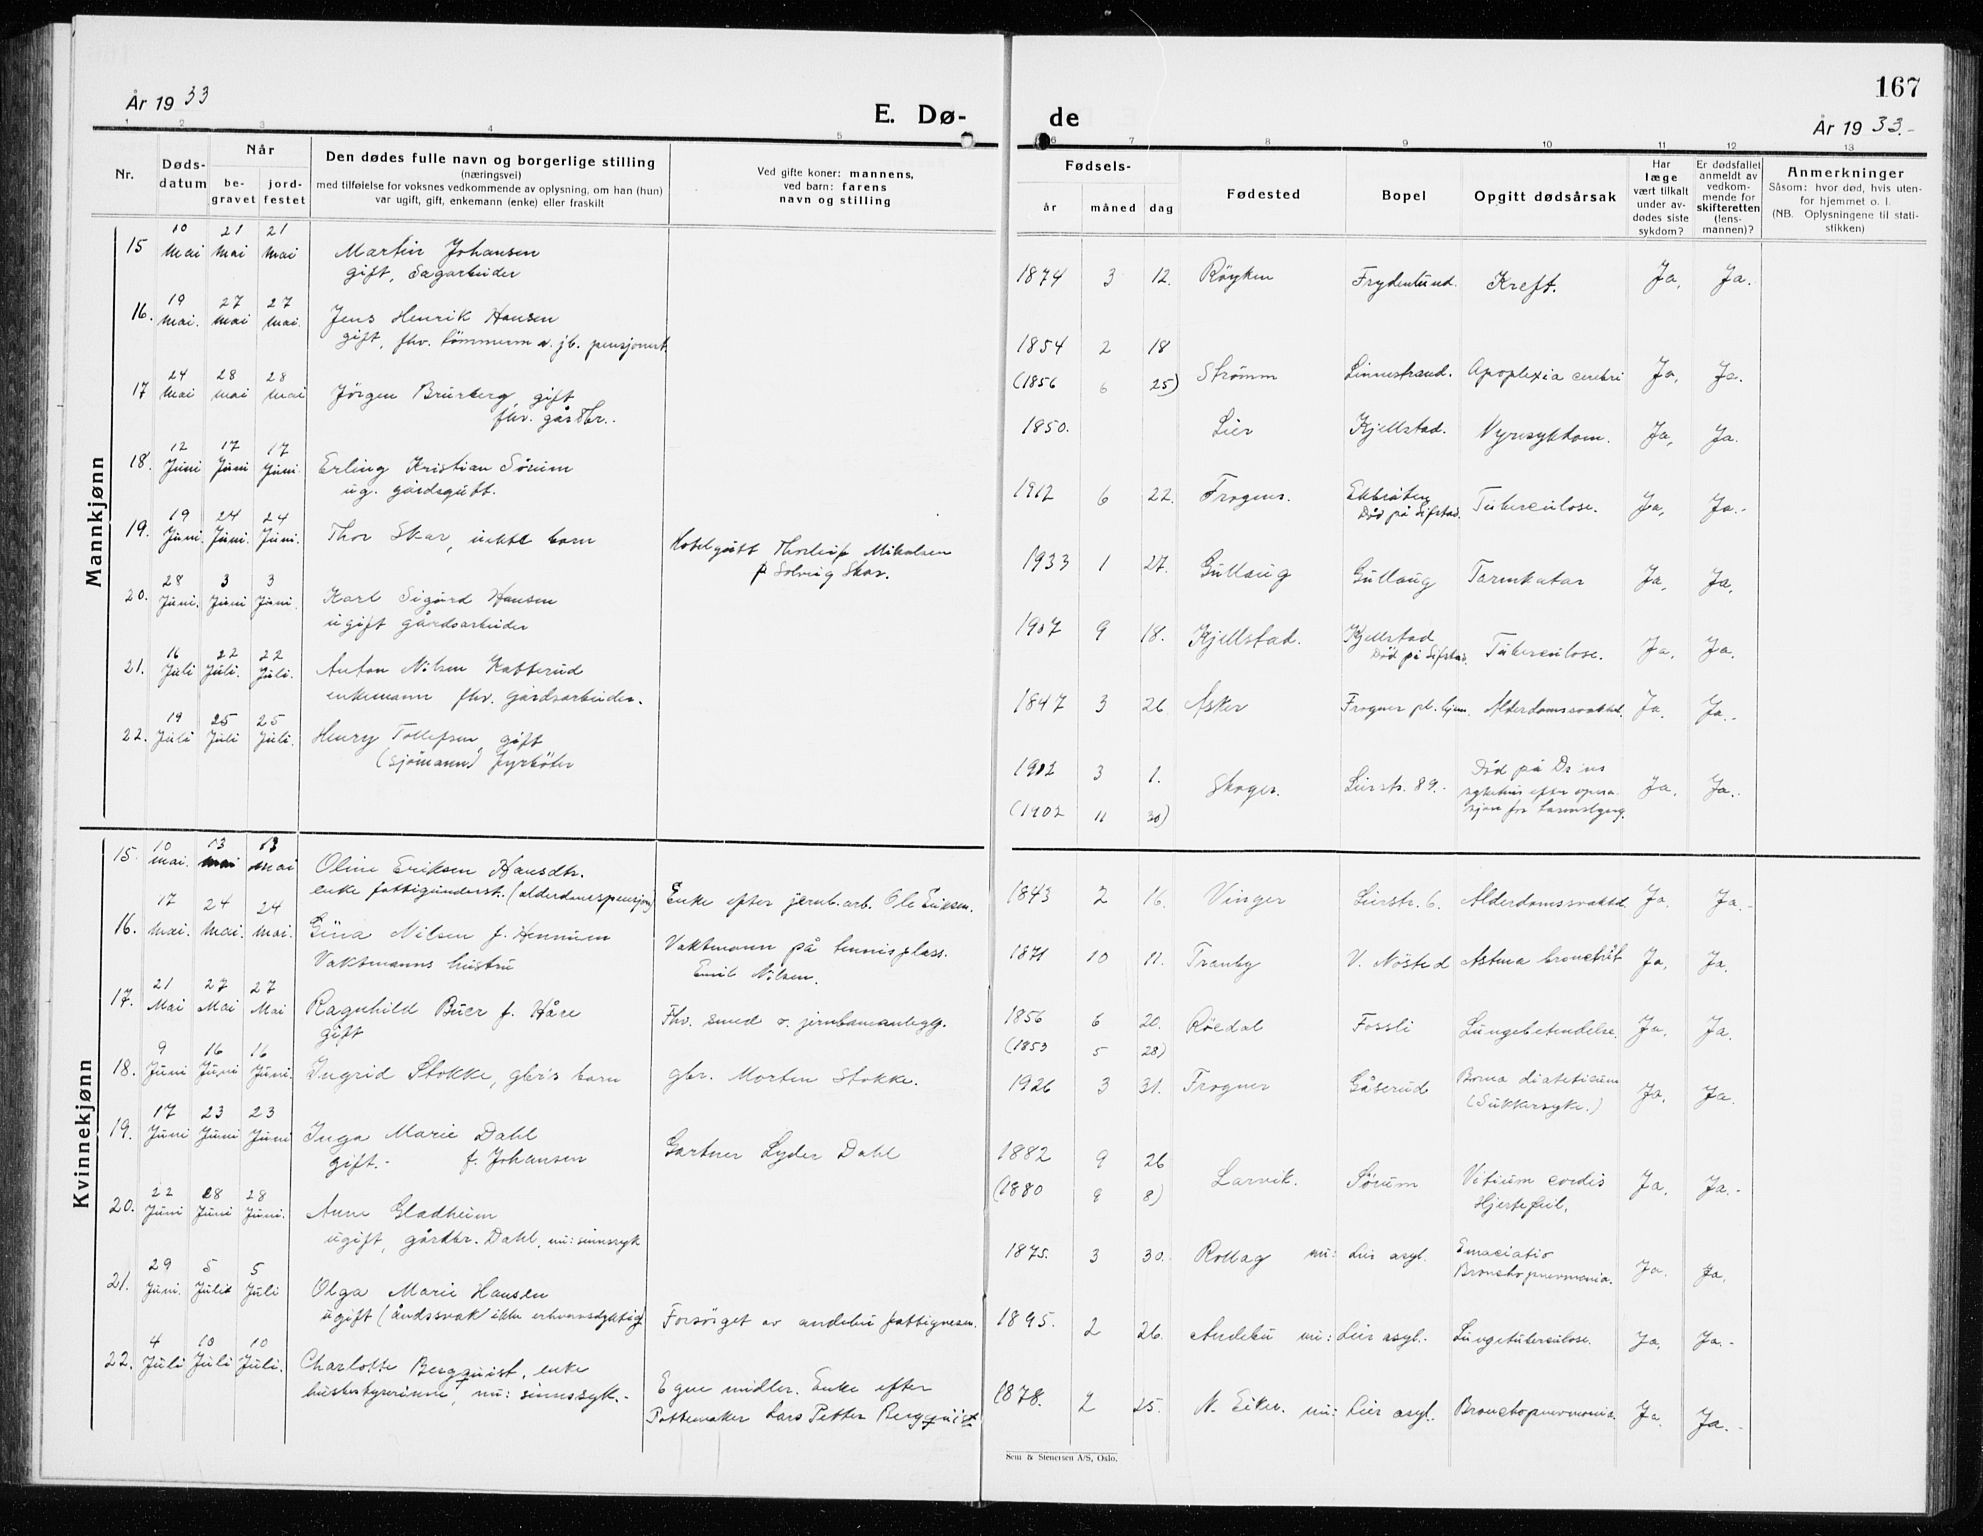 167
År 1933
E. Dø-
de
År 1933.-
1 2 3 4 5
6 7 8 9 10 11 12 13
Nr.
Døds-
datum
Når
be-
gravet
jord-
festet
Den dødes fulle navn og borgerlige stilling
(næringsvei)
med tilføielse for voksnes vedkommende av oplysning, om han (hun)
var ugift, gift, enkemann (enke) eller fraskilt
Ved gifte koner: mannens,
ved barn: farens
navn og stilling
Fødsels-
år måned dag
Fødested
Bopel
Opgitt dødsårsak
Har
læge
vært tilkalt
under av-
dødes siste
sykdom?
Er dødsfallet
anmeldt av
vedkom-
mende for
skifteretten
(lens-
mannen)?
Anmerkninger
Såsom: hvor død, hvis uten-
for hjemmet o. l.
(NB. Oplysningene til stati-
stikken)
Mannkjønn
15 10 mai 21 mai 21 mai Martin Johansen
gift, Sagarbeider
1874 3 12. Røyken Frydenlund. Kreft. Ja, Ja.
16. 19 mai. 27 mai 27 mai. Jens Henrik Hansen
gift, fhv. tømmerm v. jb. pensjonert.
1854 2 18
(1856 6 25) Strømm Linnestrand. Apoplexia cerebri Ja, Ja.
17 24 mai 28 mai 28 mai Jörgen Brurberg, gift
fhv. gårdbr..
1850. Lier Kjellstad. Nyresykdom. Ja, Ja.
18. 12 Juni 17 Juni 17 Juni. Erling Kristian Sörum
ug. gårdsgutt.
1912 6 22. Frogner. Ekbråten
Död på Sifstad. Tuberculose. Ja, Ja.-
19. 19 Juni. 24 Juni. 24 Juni. Thor Skar, uekte barn
Hotelgutt Thorleif Mikalsen
p Solveig Skar.
1933 1 27. Gullaug Gullaug Tarmkatar Ja, Ja,
20. 28 Juni. 3 Juni 3 Juni Karl Sigurd Hansen
ugift gårdsarbeider
1907 9 18. Kjellstad. Kjellstad
Död på Sifstad. Tuberculose. Ja, Ja.
21. 16 Juli 22 Juli. 22 Juli. Anton Nilsen Katterud
enkemann fhv. gårdsarbeider.
1847 3 26 Asker Frogner pl. hjem. Alderdomssvakhd. Ja. Ja..
22. 19 Juli 25 Juli 25 Juli. Henry Tollefsen, gift
(sjömann) fyrböter
1902 3 1.
(1902 11 30) Skoger. Lierstr. 89.. Död på Dr:ns
sykehus efter opera-
sjon for tarmslyng. Ja. Ja..
Kvinnekjønn
15. 10 mai. 13 mai 13 mai Oline Eriksen Hansdtr.
enke fattigunderst. (alderdomspensjon)
Enke efter jernb.arb. Ole Eriksen.
1843 2 16. Vinger Lierstr. 6. Alderdomssvakhd. Ja. Ja.-
16. 17 mai. 24 mai. 24 mai. Gina Nilsen f. Hennum
Vaktmanns hustru
Vaktmann på tennisplass.
Emil Nilsen.
1871 10 11. Tranby V. Nösted Astma bronchit Ja, Ja.
17. 21 Mai 27 Mai 27 Mai Ragnhild Buer f. Håre
gift
Fhv. smed v. jernbaneanlegg.
1856 6 20.
(1853 5 28) Röedal Fossli Lungebetendelse. Ja, Ja.
18. 9 Juni 16 Juni 16 Juni. Ingrid Stokke, gbr's barn
gbr. Morten Stokke.
1926 3 31. Frogner Gåserud Boma diateticum
(Sukkersyke.) Ja, Ja.
19. 17 Juni 23 Juni 23 Juni Inga Marie Dahl
gift.- f. Johansen
Gartner Lyder Dahl
1882 9 26
(1880 9 8) Larvik. Sörum Vitium cordis
Hjertefeil, Ja, Ja.-
20. 22 Juni 28 Juni 28 Juni. Anne Gladheim
ugift, gårdbr. Dahl, nu: sinnssyk
1875. 3 30. Rollag nu: Lier asyl. Emaciatio
Bronchopneumonia. Ja. Ja,
21. 29 Juni. 5 Juli 5 Juli Olga Marie Hansen
ugift (åndssvak ikke erhvervsdyktig)
Forsörget av andebu fattigvesen.
1895. 2 26. Andebu nu: Lier asyl.. Lungetuberculose. Ja, Ja.-
22. 4 Juli 10 Juli 10 Juli. Charlotte Bergquist, enke
husbestyrerinne, nu: sinnssyk.-
Egne midler. Enke efter
Pottemaker Lars Petter Bergquist
1878. 2 25. N. Eiker. nu: Lier asyl. Bronchopneumonia. Ja. Ja.-
Sem & Stenersen A/S, Oslo.